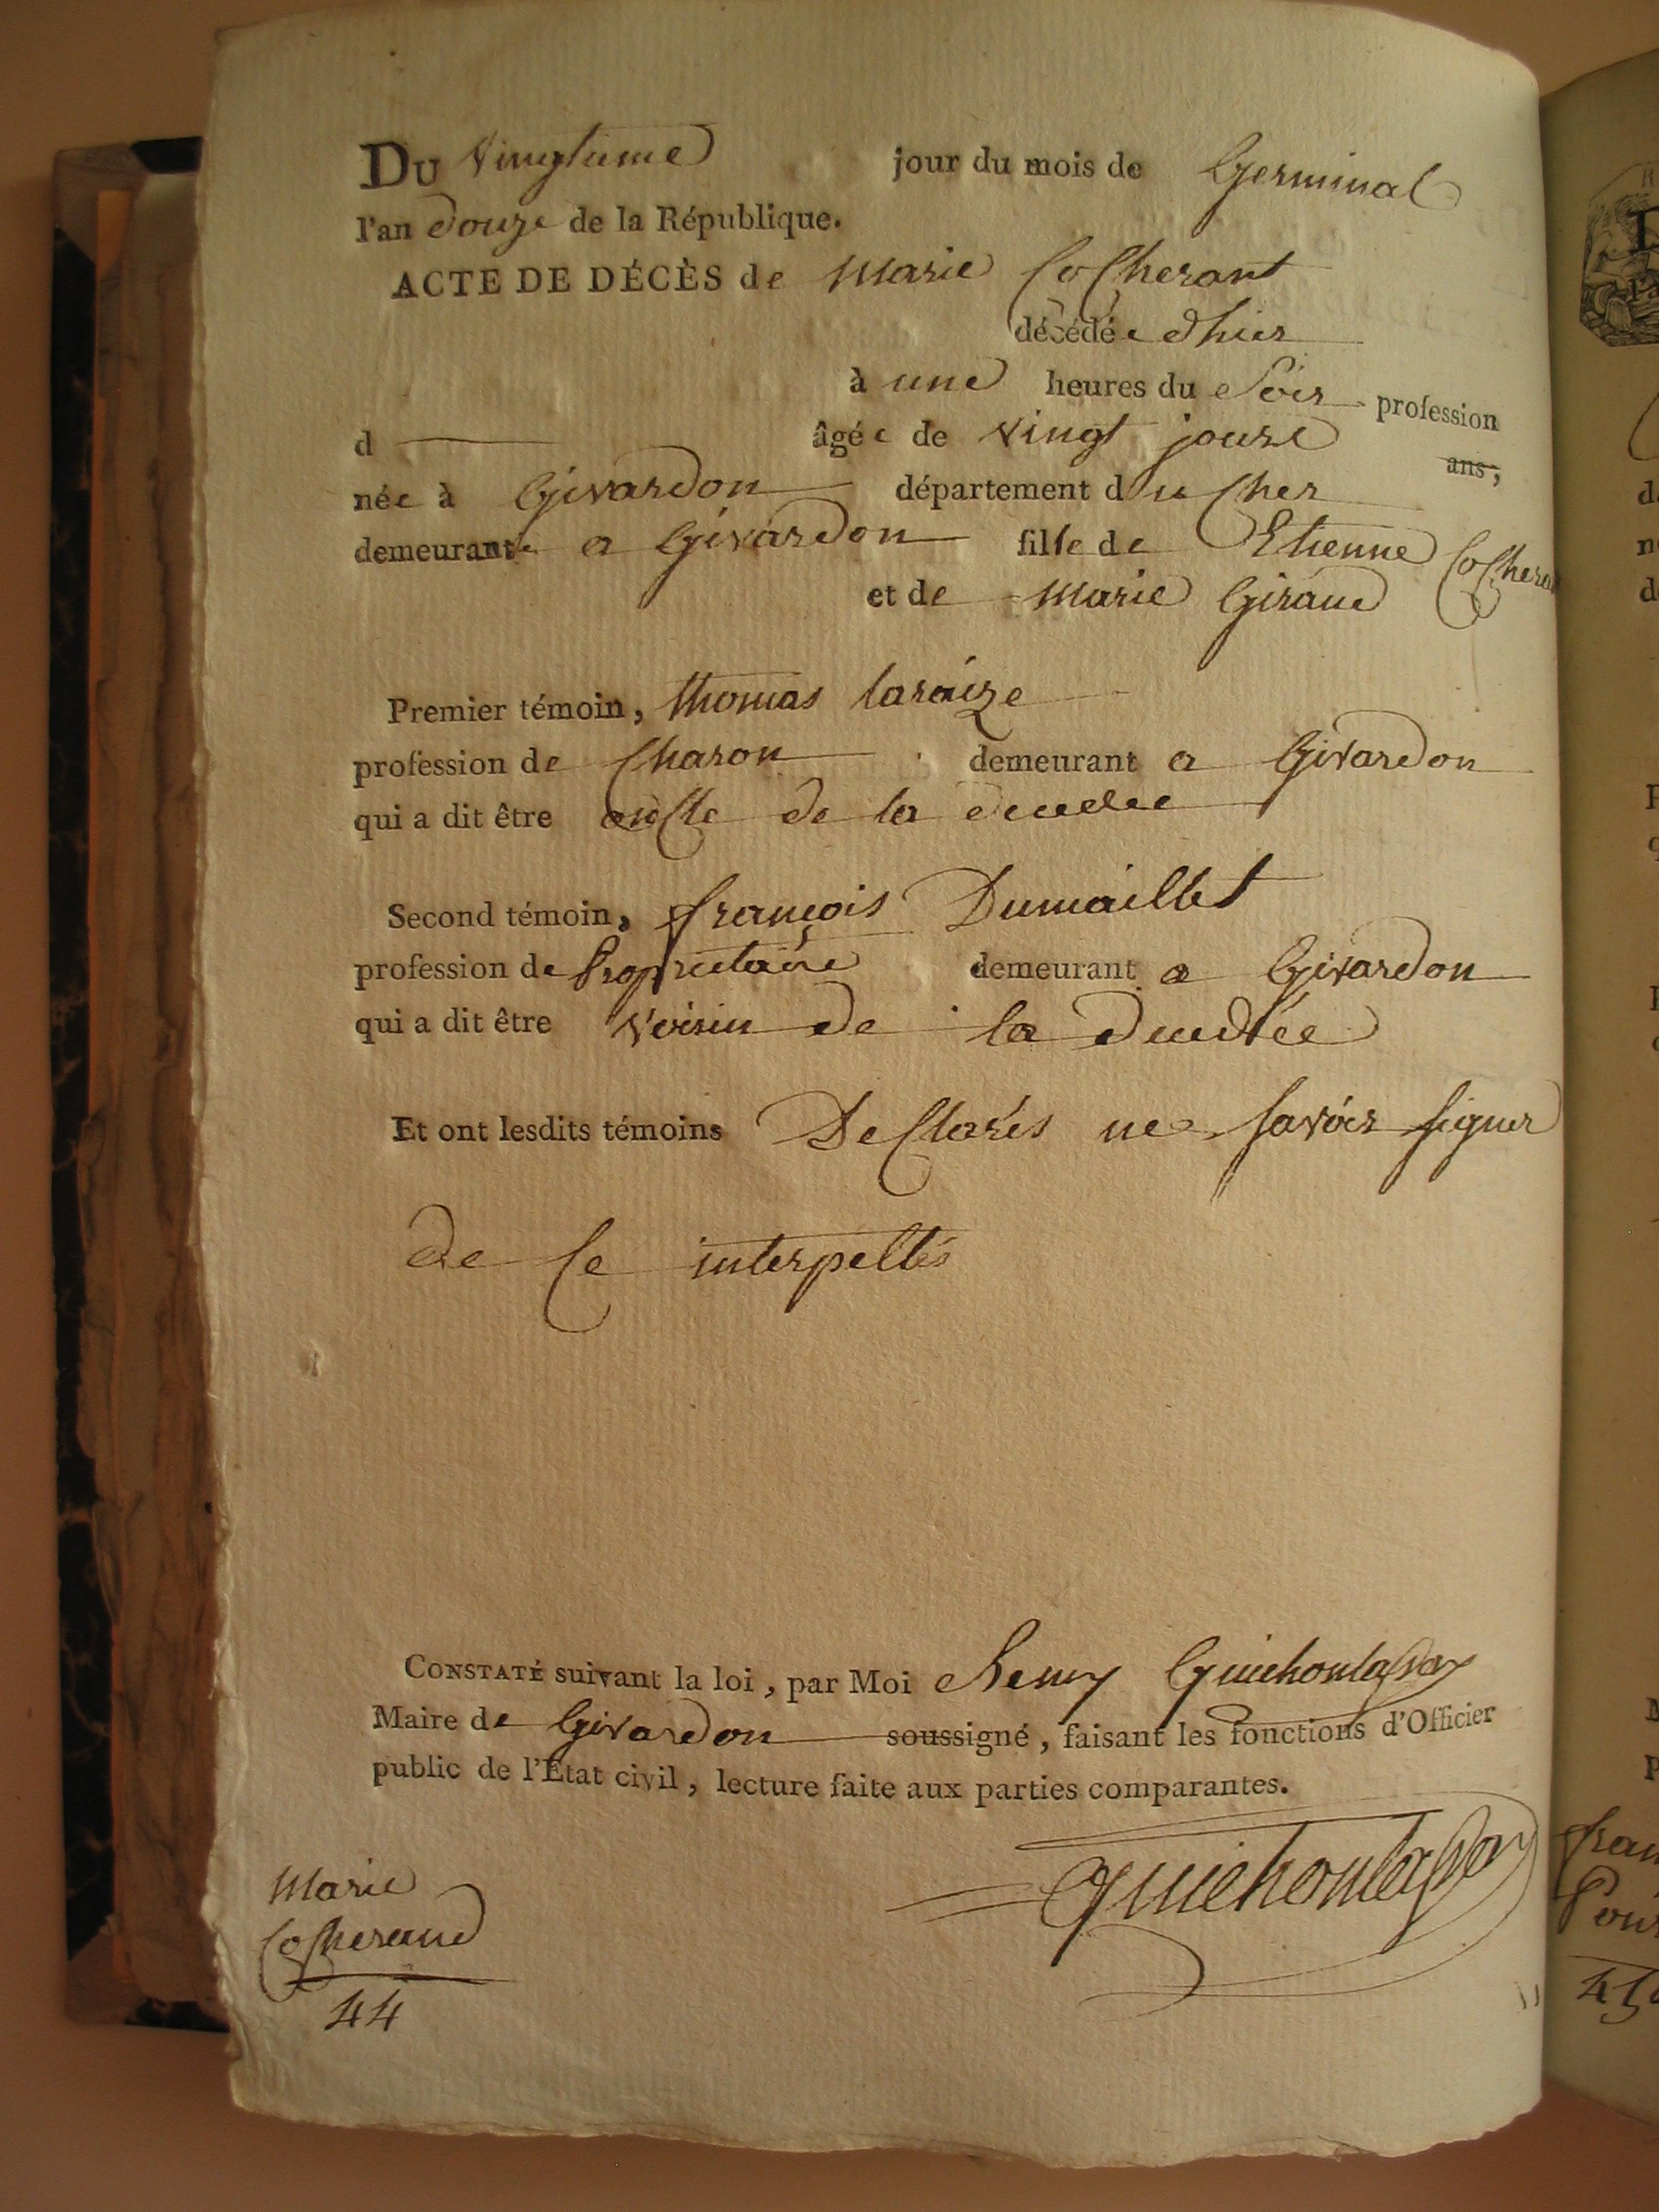 DU vingtieme jour du mois de Germinal
l'an douze de la République.
ACTE DE DÉCÈS de Marie Cocherant
décédée d'hier
à une heures du Soir profession
d âgée de vingt jours ans,
née à Givardon département du Cher
demeurante a Givardon fille de Etienne
et de Marie Giraud
Premier témoin, thomas laraize
profession de Charon demeurant a Givardon
qui a dit être oncle de la
Second témoin, françois Dumaillet
profession de Proprietaire demeurant a Givardon
qui a dit être voisin de la
Et ont lesdits témoins Declarés ne savoir signer
de ce interpellés
CONSTATÉ suivant la loi, par Moi Remy
Maire de Givardon soussigné, faisant les fonctions d'Officier
public de l'Etat civil, lecture faite aux parties comparantes.
Marie
Cocheraud
44